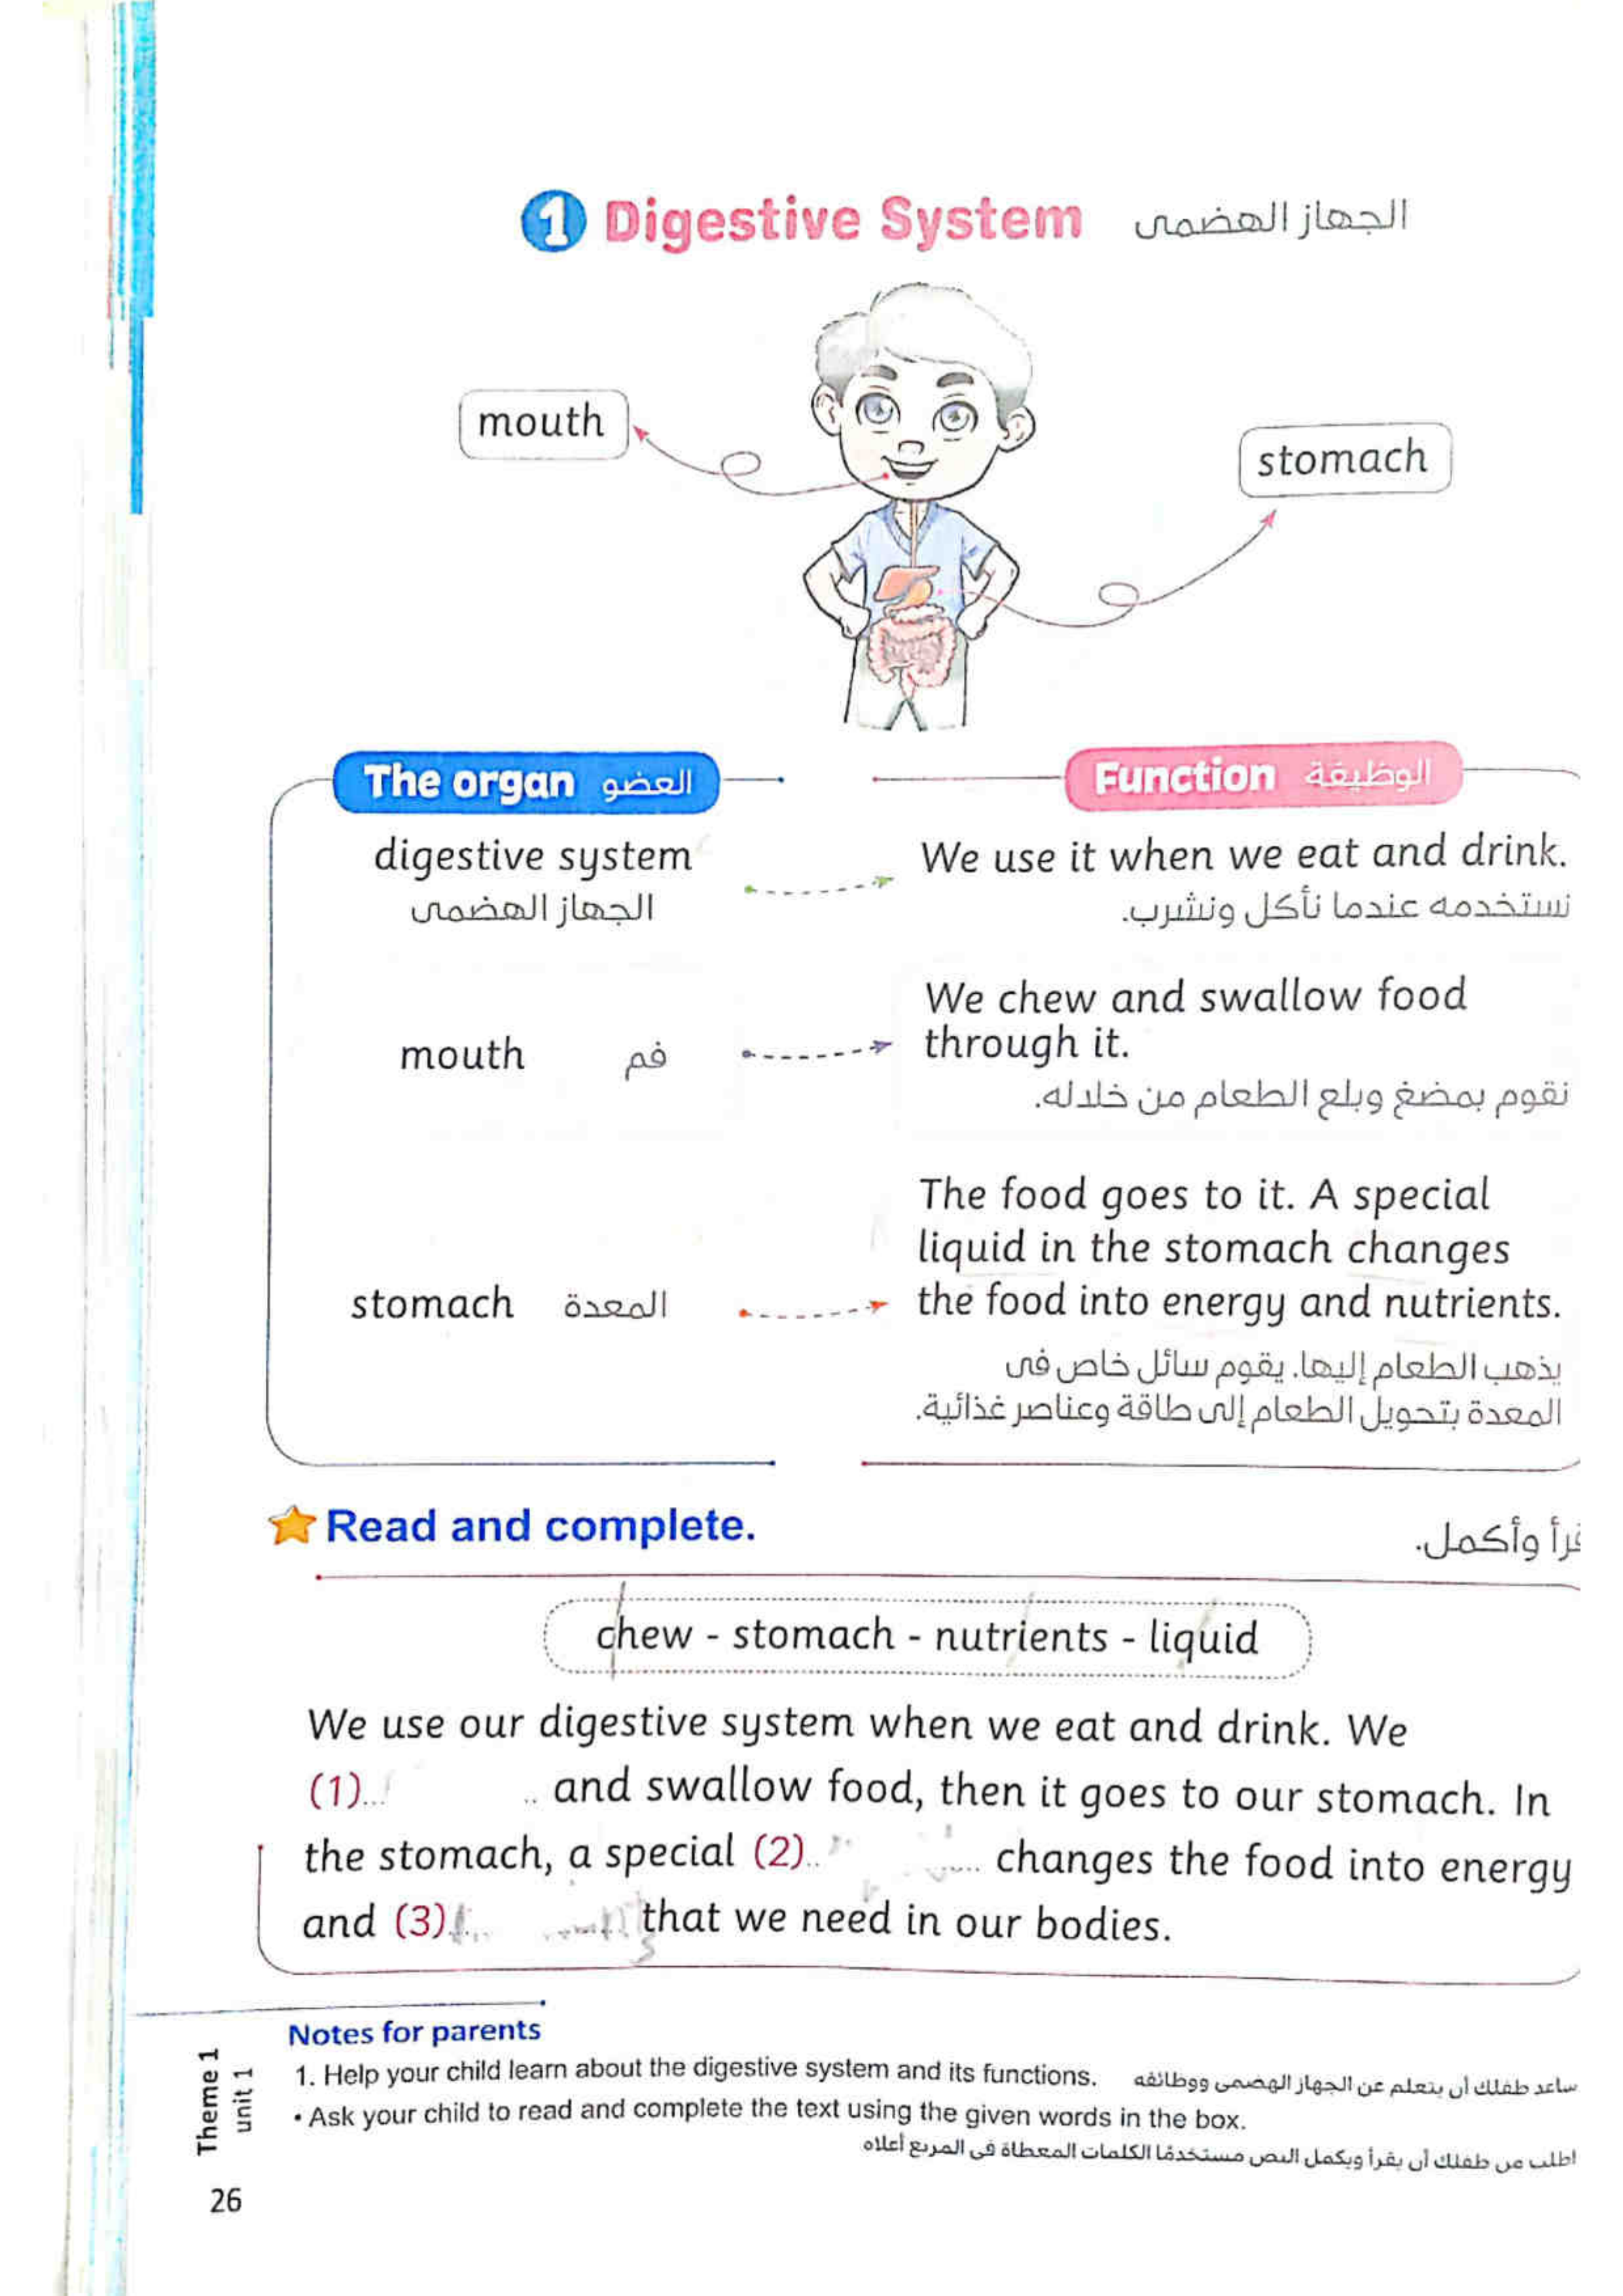 1 Digestive System الجهاز الهضمى
mouth
stomach
The organ العضو
Function الوظيفة
digestive system
الجهاز الهضمى
We use it when we eat and drink.
نستخدمه عندما نأكل ونشرب.
mouth فم
We chew and swallow food
through it.
نقوم بمضغ وبلع الطعام من خلاله.
stomach المعدة
The food goes to it. A special
liquid in the stomach changes
the food into energy and nutrients.
يذهب الطعام إليها. يقوم سائل خاص فى
المعدة بتحويل الطعام إلى طاقة وعناصر غذائية.
Read and complete.
وأكمل.
chew - stomach - nutrients - liquid
We use our digestive system when we eat and drink. We
(1)... .. and swallow food, then it goes to our stomach. In
the stomach, a special (2).. ... changes the food into energy
and (3). that we need in our bodies.
Notes for parents
1. Help your child learn about the digestive system and its functions. ساعد طفلك أن يتعلم عن الجهاز الهضمى ووظائفه
• Ask your child to read and complete the text using the given words in the box.
اطلب من طفلك أن يقرأ ويكمل النص مستخدمًا الكلمات المعطاة فى المربع أعلاه
Theme 1
unit 1
26